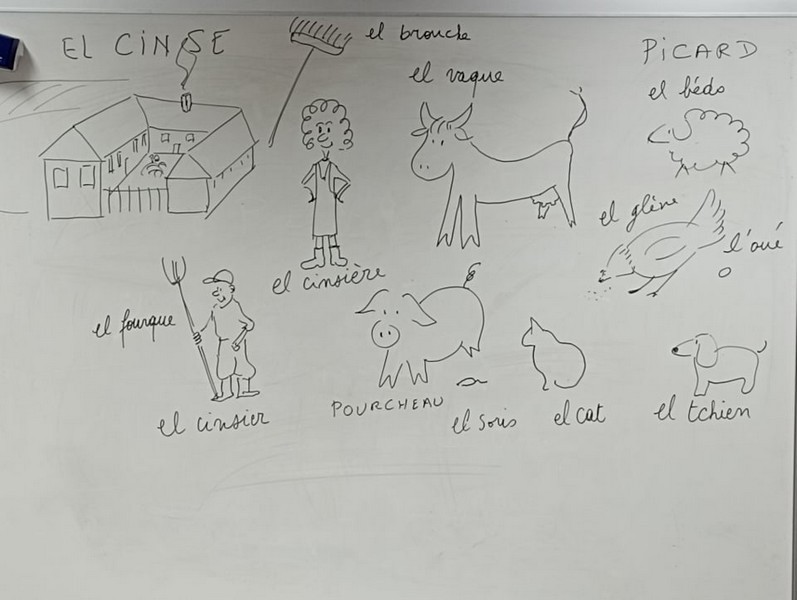 EL CINSE
el brouche
PiCARD
el vaque
el bédo
el glène
l'oué
el cinsière
el fourque
POURCHEAU
el cinsier
el soris
el cat
el tchien